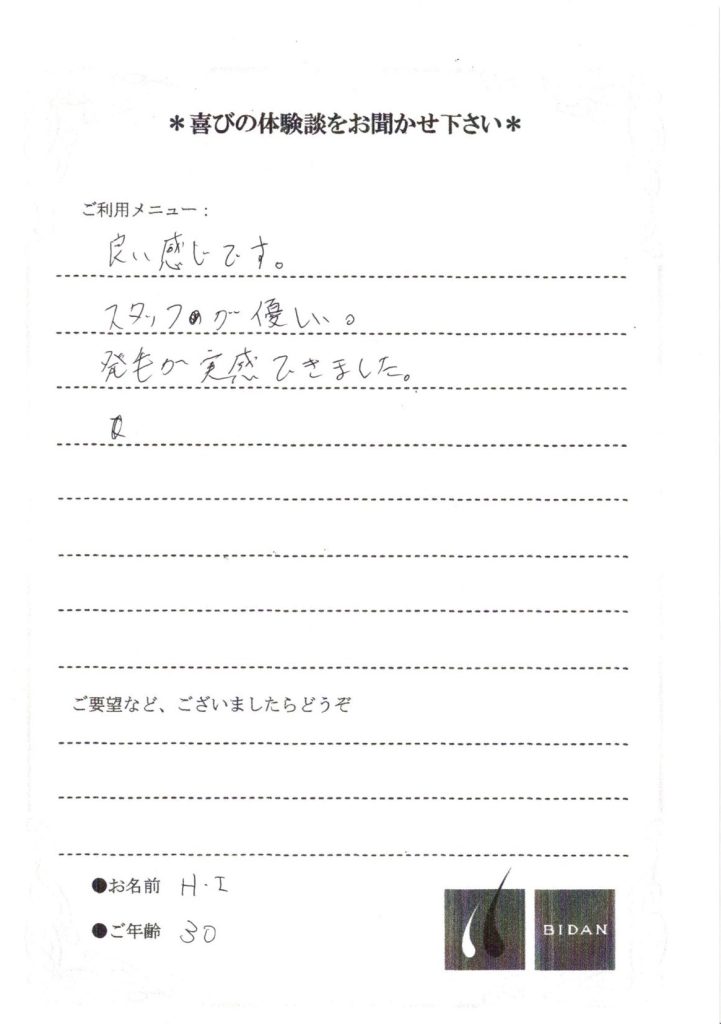 ＊喜びの体験談をお聞かせ下さい＊
ご利用メニュー：
良い感じです。
スタッフが優しい。
発毛が実感できました。
ご要望など、ございましたらどうぞ
●お名前 H・I
●ご年齢 30
BIDAN